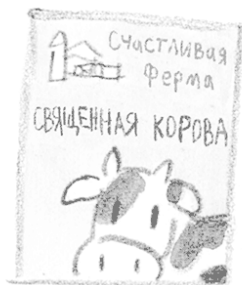 Счастливая
ферма
СВЯЩЕННАЯ КОРОВА